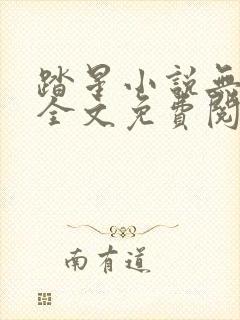 踏星小說無
全文免費閱
南有道